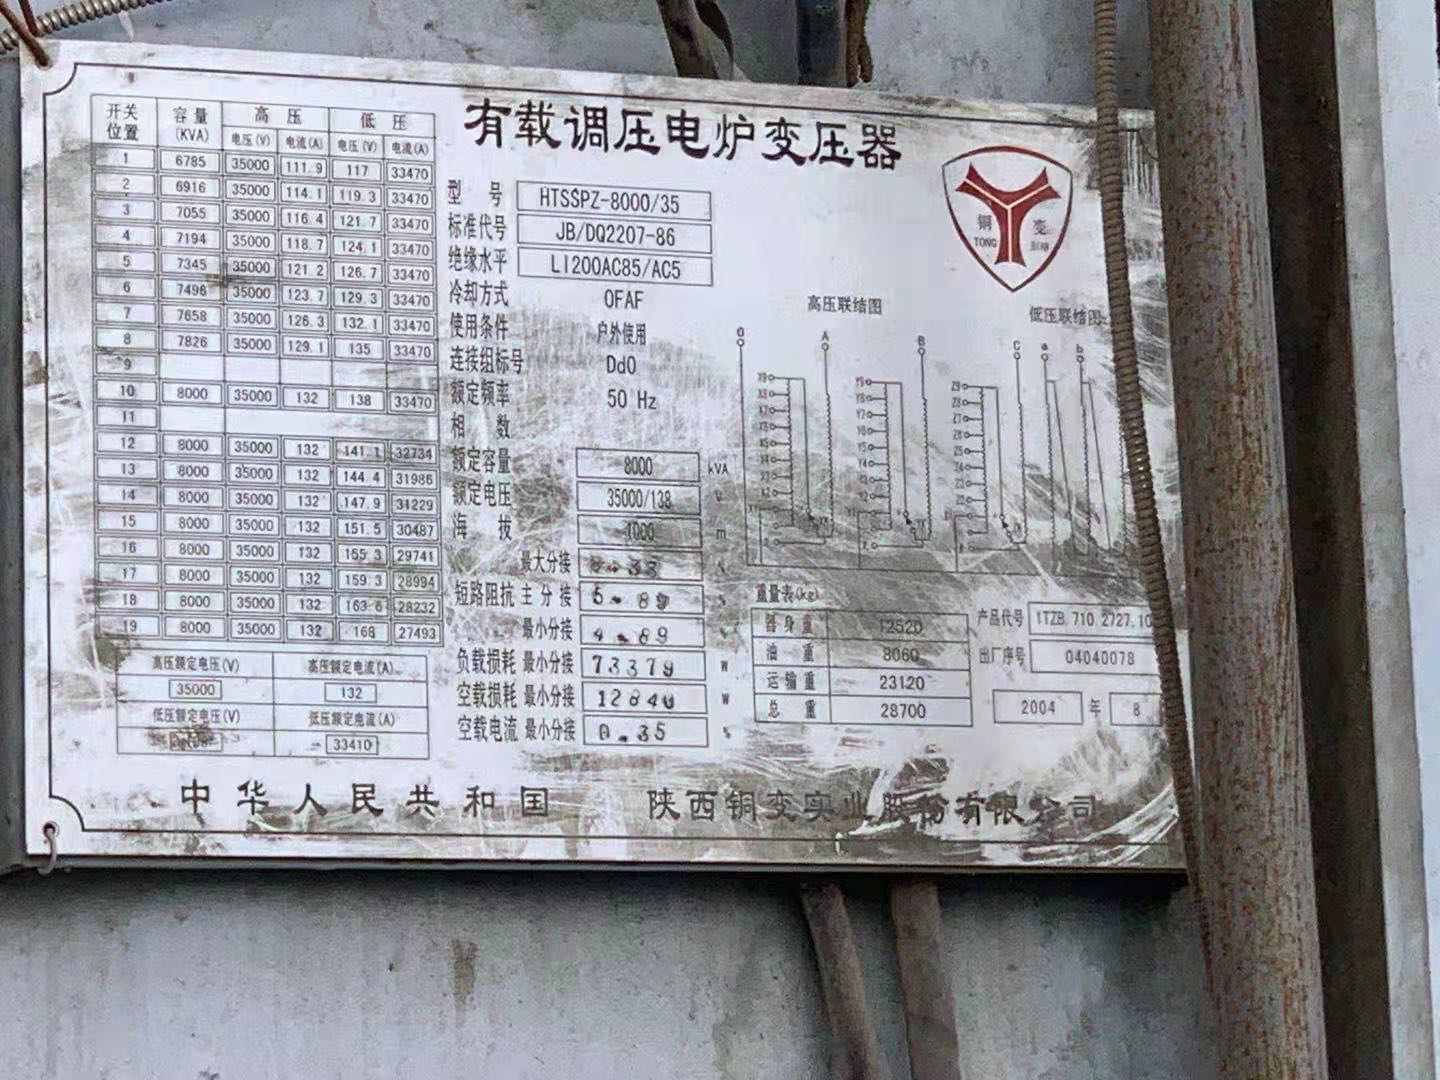 有载调压电炉变压器
开关位置 容量(KVA) 高压 低压
电压(V) 电流(A) 电压(V) 电流(A)
1 6785 35000 111.9 117 33470
2 6916 35000 114.1 119.3 33470
3 7055 35000 116.4 121.7 33470
4 7194 35000 118.7 124.1 33470
5 7345 35000 121.2 126.7 33470
6 7496 35000 123.7 129.3 33470
7 7658 35000 126.3 132.1 33470
8 7826 35000 129.1 135 33470
9
10 8000 35000 132 138 33470
11
12 8000 35000 132 141.1 32734
13 8000 35000 132 144.4 31986
14 8000 35000 132 147.9 31229
15 8000 35000 132 151.5 30487
16 8000 35000 132 155.3 29741
17 8000 35000 132 159.3 28994
18 8000 35000 132 163.6 28232
19 8000 35000 132 168 27493
高压额定电压(V) 高压额定电流(A)
35000 132
低压额定电压(V) 低压额定电流(A)
33410
型号 HTSSPZ-8000/35
标准代号 JB/DQ2207-86
绝缘水平 LI200AC85/AC5
冷却方式 OFAF
使用条件 户外使用
连接组标号 Dd0
额定频率 50 Hz
相数
额定容量 8000 kVA
额定电压 35000/138 V
海拔 1000 m
最大分接
短路阻抗 主分接 %
最小分接 4.89
负载损耗 最小分接 73379 W
空载损耗 最小分接 12840 W
空载电流 最小分接 0.35 %
铜变
TONG BIAN
高压联结图 低压联结图
O A B C a b
重量表(kg)
器身重 12520
油重 8060
运输重 23120
总重 28700
产品代号 1TZB.710.2727.10
出厂序号 04040078
2004 年 8
中华人民共和国 陕西铜变实业股份有限公司